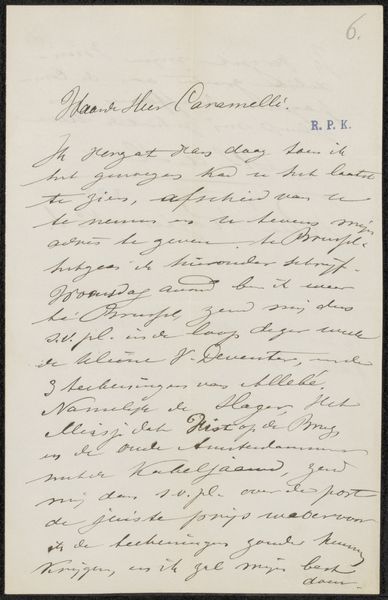 6.
Waarde Heer Caramelli!
R. P. K.
Ik vergat daag toen ik
het genoegen had u het laatst
te zien, afscheid van u
te nemen en u tevens mijn
adres te geven te Brussel
hetgeen ik hieronder schrijf.
Woensdag avond ben ik weer
te Brussel, zend mij dus
s.v.pl. in de loop dezer week
de kleine V. Deventer, en de
3 teekeningen van Allebé,
Namelijk de Slager, Het
Meisje dat op de Brug
en de oude Amsterdammer
met de Kabeljaauw, zend
mij dan s.v.pl. over de post
de juiste prijs waarvoor
ik de teekeningen zoude kunnen
krijgen, en ik zal mijn best
doen